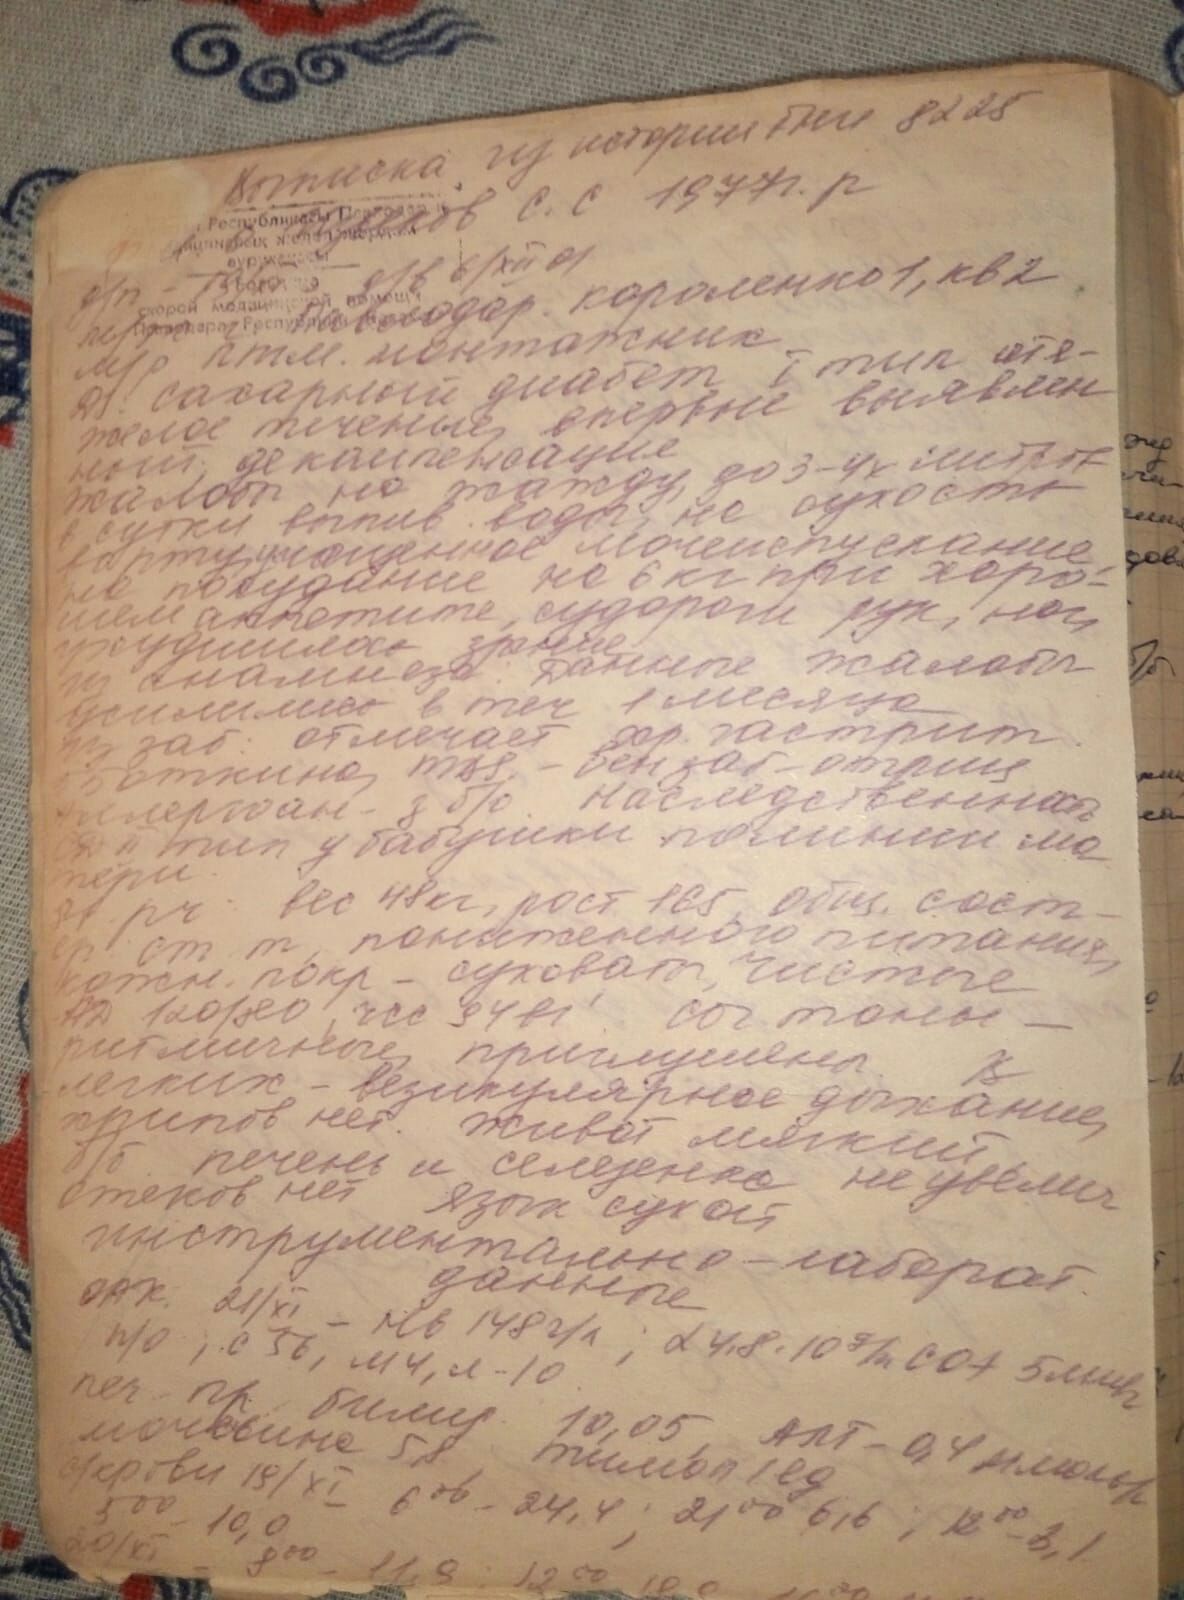 Выписка из истории бни 8225
С. С 1977г. р
Республикасы Павлодар
6/XII 01
скорой медицинской помощи
Павлодар. Короленко 1, кв 2
м/р ПТМ. монтажник
Ds: сахарный диабет I тип тя-
желое течение, впервые выявлен
ный, декомпенсация
жалобы на жажду, до 3-4х литров
в сутки выпив. воды, на сухость
во рту, учащенное мочеиспускание
на похудание на 6 кг при хоро-
шем аппетите, судороги рук, ног,
ухудшилось зрение
из анамнеза: Данные жалобы
усилились в теч 1 месяца
из заб: отмечает хр. гастрит.
б. Боткина, твс, - вен заб - отриц
Аллергоан - з б/о Наследственность
СД II тип у бабушки по линии ма
тери.
вес 48 кг, рост 165, общ. сост -
ср. ст. т, пониженного питания,
кожн. покр - суховаты, чистые
АД 120/80, чсс 94 в 1' сог тоны -
ритмичные, приглушены. В
легких - везикулярное дыхание,
хрипов нет. живот мягкий
б/б. печень и селезенка не увелич
отеков нет язык сухой
инструментально - лаборат.
данные
ОАК. 21/XI - Hb 148 г/л; L 4,8 · 10⁹/л СОЭ 5мм/ч
п/о; с 56, м 4, л - 10
печ. пр. билир. 10,05, АЛТ - 0,4
мочевина 5,8 тимол 1 ед
с/крови 19/XI 6⁰⁰ - 24,4; 21⁰⁰ 6,6; 12⁰⁰ - 3,1
5⁰⁰ - 10,0
20/XI - 8⁰⁰ - 11,9; 12⁰⁰